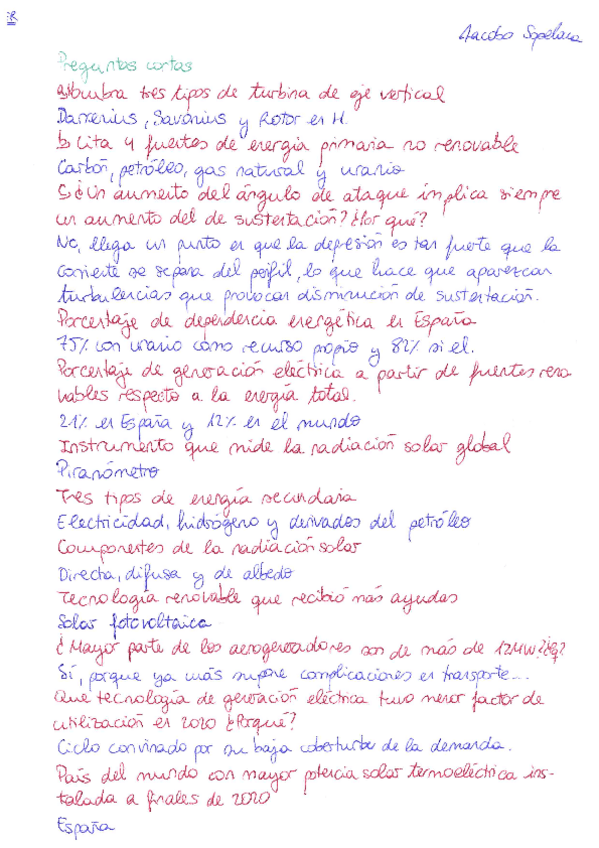 ER
Jacobo
Preguntas cortas
a) Nombra tres tipos de turbina de eje vertical
Darrerius, Savonius y Rotor en H.
b Cita 4 fuentes de energía primaria no renovable
Carbón, petróleo, gas natural y uranio
c ¿Un aumento del ángulo de ataque implica siempre
un aumento del de sustentación? ¿Por qué?
No, llega un punto en que la depresión es tan fuerte que la
corriente se separa del perfil, lo que hace que aparezcan
turbulencias que provocan disminución de sustentación.
Porcentaje de dependencia energética en España
75% con uranio como recurso propio y 82% si el.
Porcentaje de generación eléctrica a partir de fuentes reno
vables respecto a la energía total.
21% en España y 12% en el mundo
Instrumento que mide la radiación solar global
Piranómetro
Tres tipos de energía secundaria
Electricidad, hidrógeno y derivados del petróleo
Componentes de la radiación solar
Directa, difusa y de albedo
Tecnología renovable que recibió más ayudas
Solar fotovoltaica
¿Mayor parte de los aerogeneradores son de más de 12MW?
Sí, porque ya más supone complicaciones en transporte...
Que tecnología de generación eléctrica tuvo menor factor de
utilización en 2020 ¿Porqué?
Ciclo convinado por su baja cobertura de la demanda.
País del mundo con mayor potencia solar termoeléctrica ins-
talada a finales de 2020
España